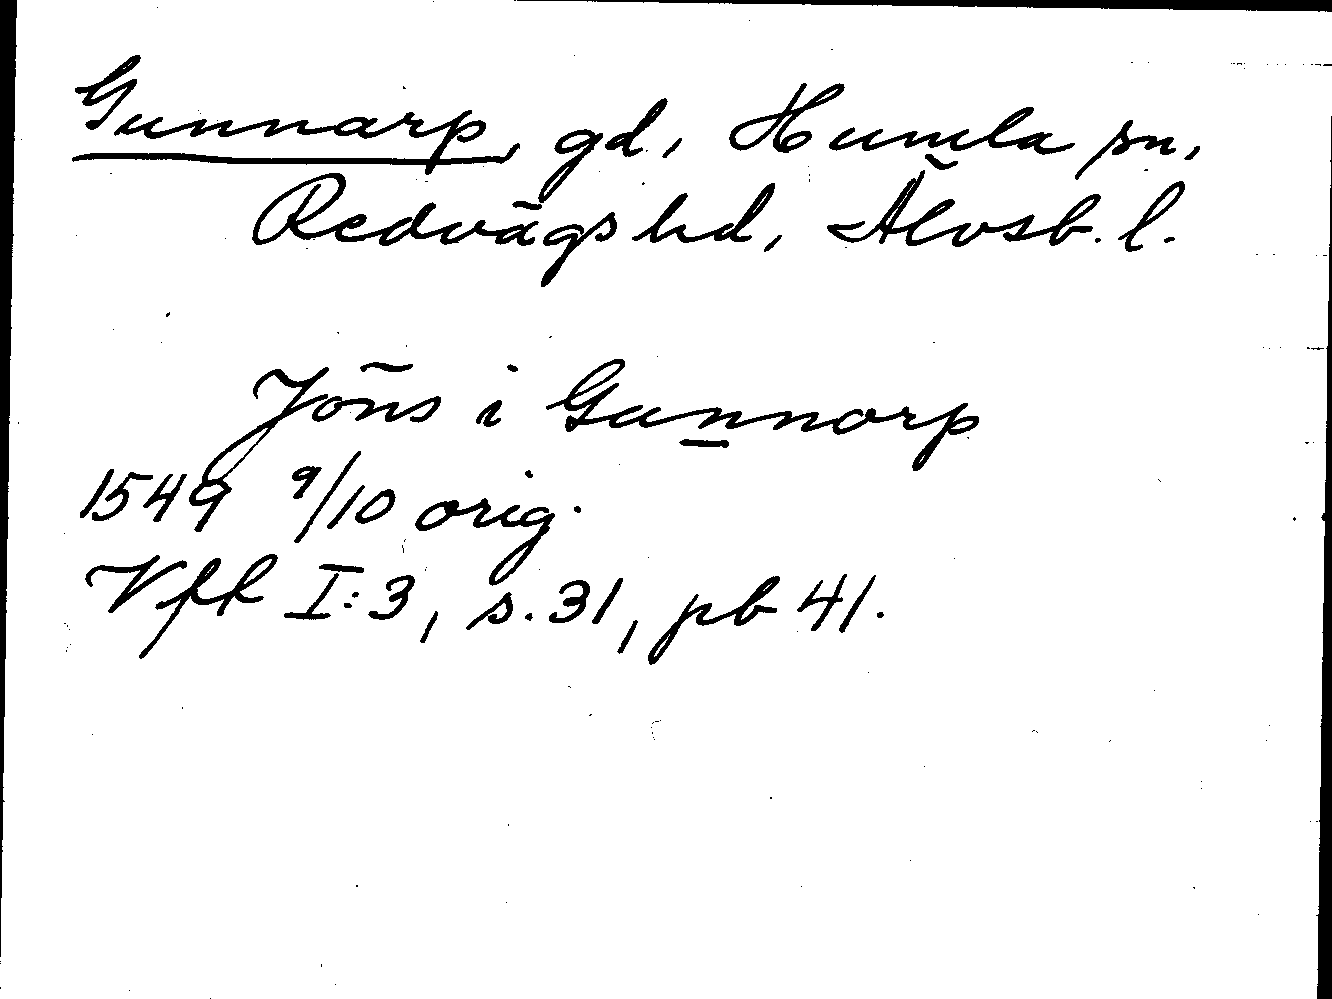 Gunnarp, gd, Humla sn,
Redvägs hd, Älvsb. l.
Jöns i Gunnorp
1549 9/10 orig.
Vfk I:3, s. 31, pb 41.